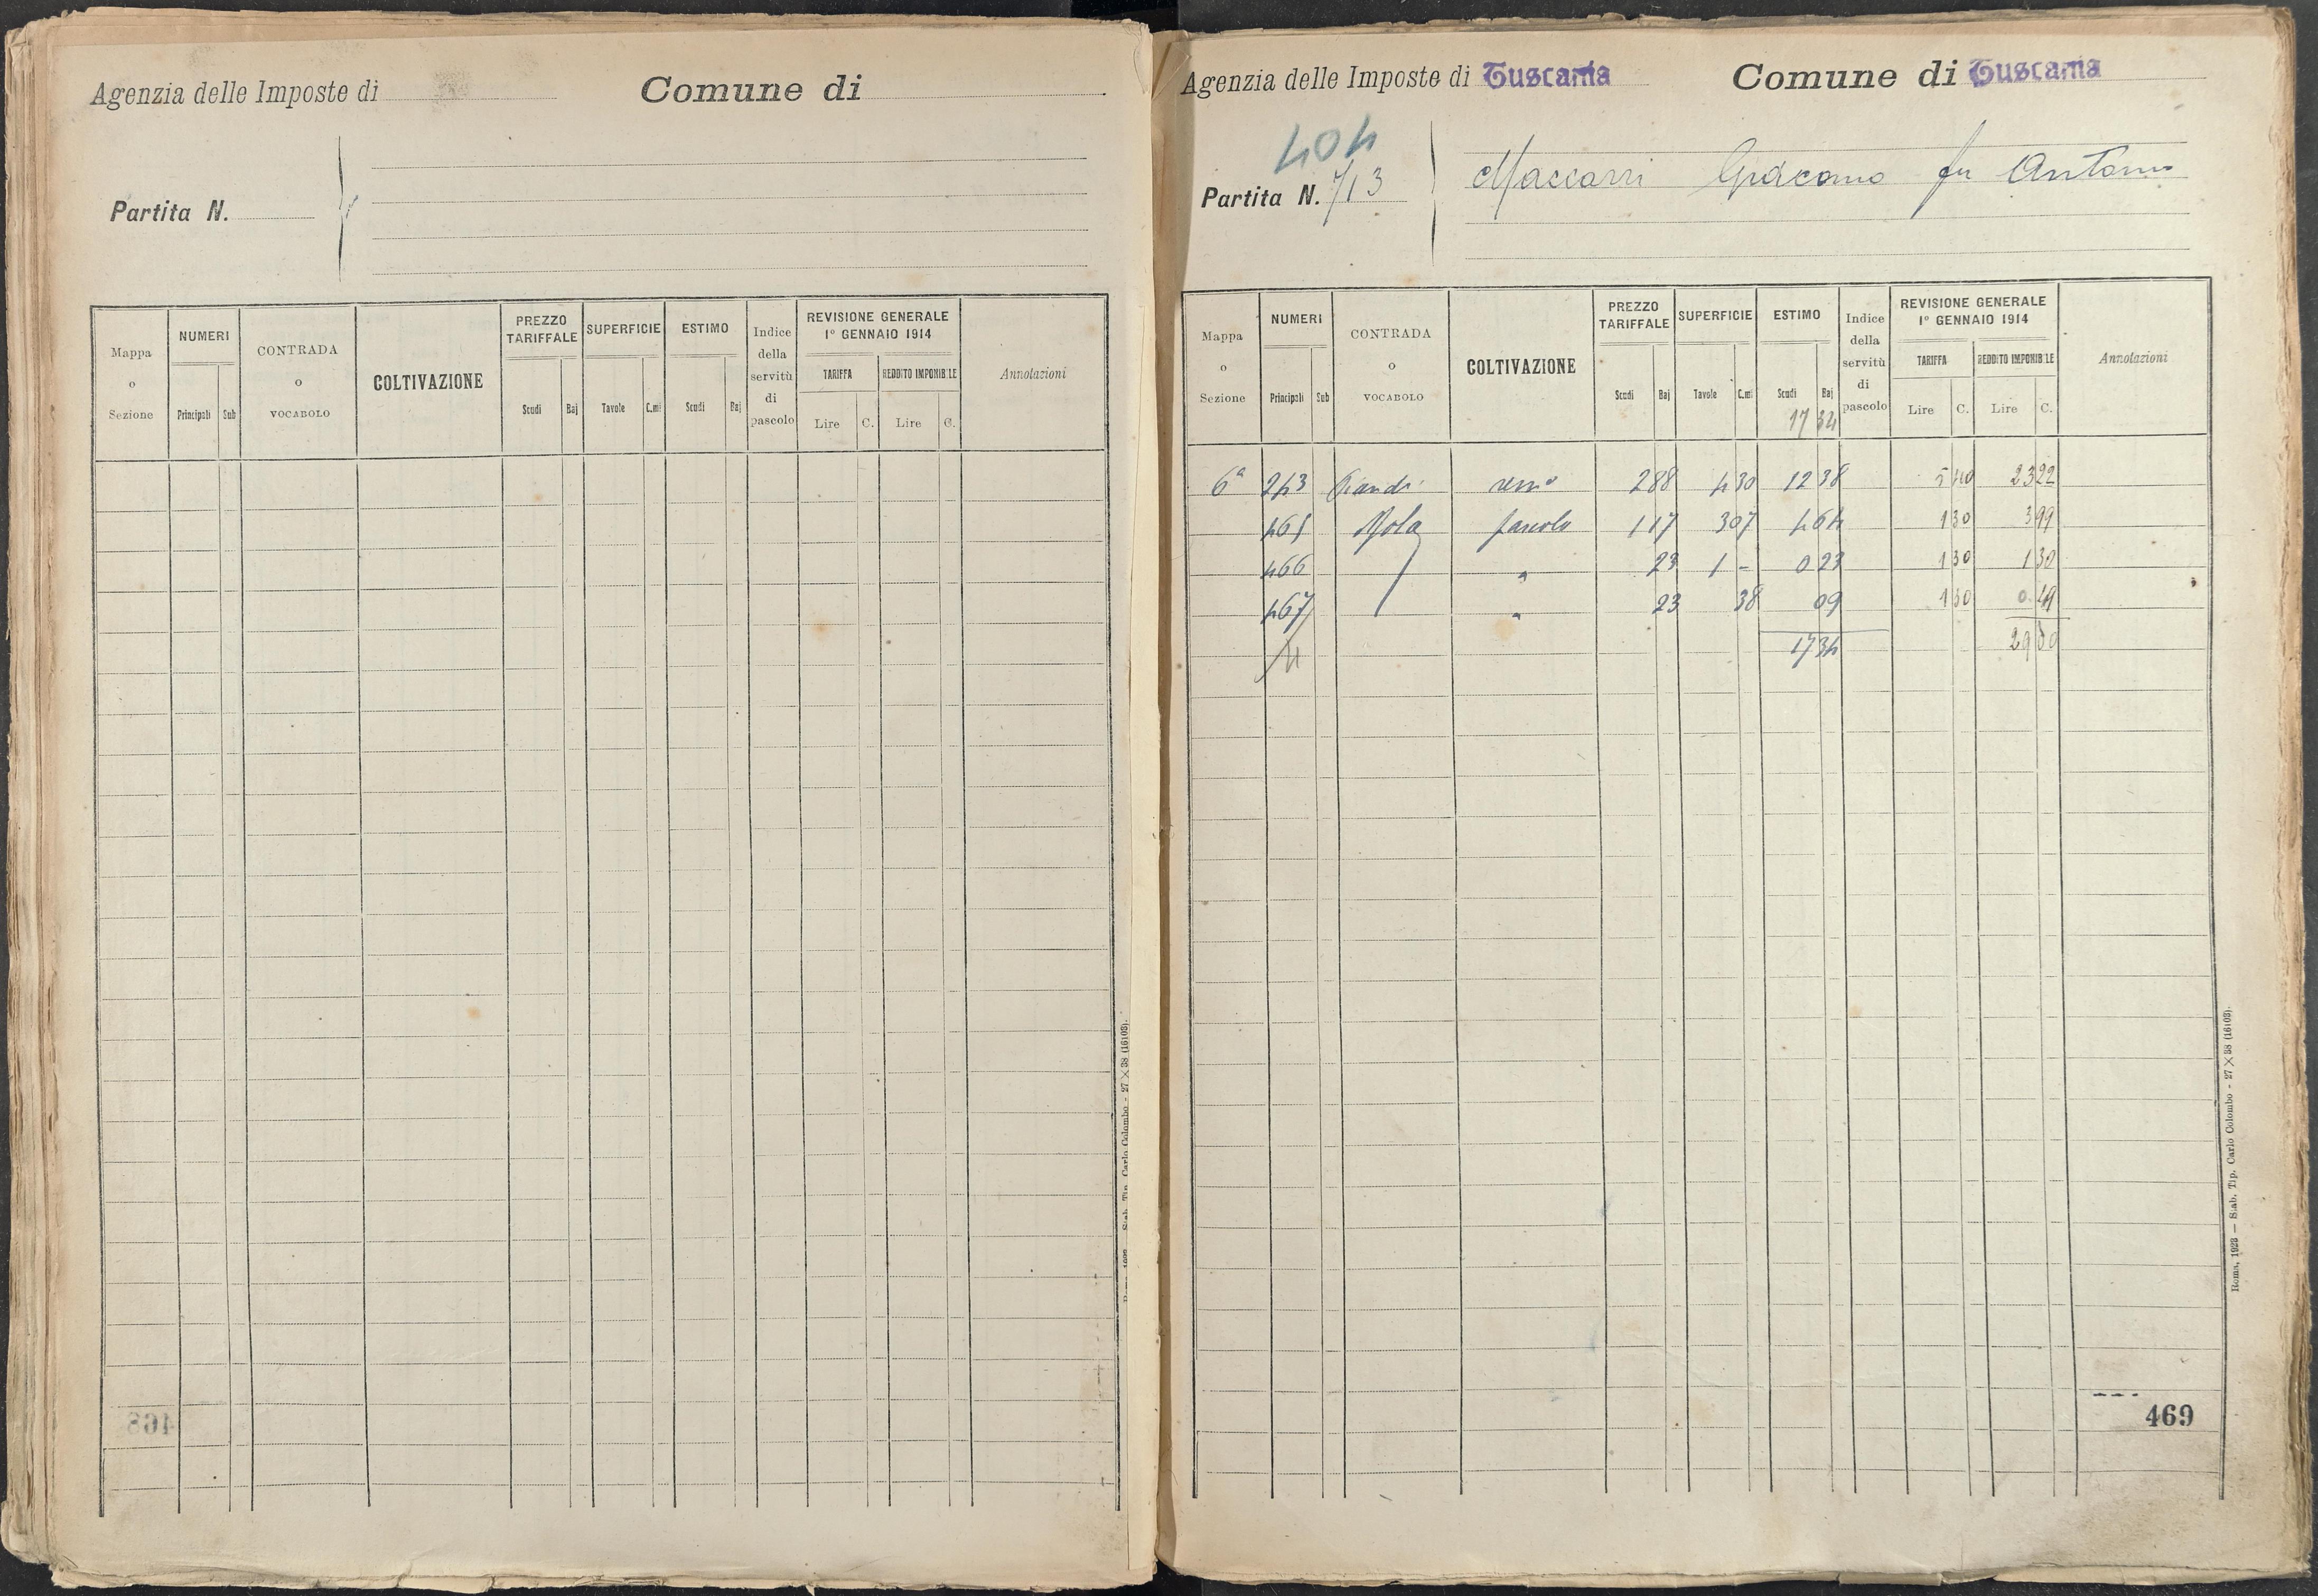 Agenzia delle Imposte di
Comune di
Partita N.
Mappa o Sezione
NUMERI
Principali Sub
CONTRADA o VOCABOLO
COLTIVAZIONE
PREZZO TARIFFALE
Scudi Baj
SUPERFICIE
Tavole C.mi
ESTIMO
Scudi Baj
Indice della servitù di pascolo
REVISIONE GENERALE
1° GENNAIO 1914
TARIFFA REDDITO IMPONIBILE
Lire C. Lire C.
Annotazioni
468
Roma, 1923 — Stab. Tip. Carlo Colombo - 27 × 38 (16103).
Agenzia delle Imposte di Tuscania
Comune di Tuscania
404
Partita N. 713
Maccarri Giacomo fu Antonio
Mappa o Sezione
NUMERI
Principali Sub
CONTRADA o VOCABOLO
COLTIVAZIONE
PREZZO TARIFFALE
Scudi Baj
SUPERFICIE
Tavole C.mi
ESTIMO
Scudi Baj
17 34
Indice della servitù di pascolo
REVISIONE GENERALE
1° GENNAIO 1914
TARIFFA REDDITO IMPONIBILE
Lire C. Lire C.
Annotazioni
6ª 243 288 4 30 12 38 5 40 23 22
465 Mola pascolo 1 17 3 07 4 64 1 30 3 99
466 " 23 1 - 0 23 1 30 1 30
467 " 23 38 09 1 30 0 49
4 17 34 29 00
469
Roma, 1923 — Stab. Tip. Carlo Colombo - 27 × 38 (16103).